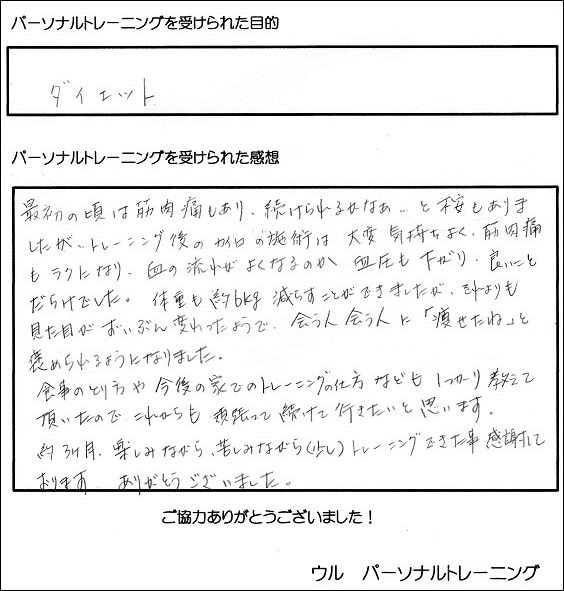 パーソナルトレーニングを受けられた目的
ダイエット
パーソナルトレーニングを受けられた感想
最初の頃は筋肉痛もあり、続けられるかなあ…と不安もありま
したが、トレーニング後のカイロの施術は大変気持ちよく、筋肉痛
もラクになり、血の流れがよくなるのか血圧も下がり、良いこと
だらけでした。体重も約6kg減らすことができましたが、それよりも
見た目がずいぶん変わったようで、会う人会う人に「痩せたね」と
褒められるようになりました。
食事のとり方や今後の家でのトレーニングの仕方なども しっかり教えて
頂いたので、これからも頑張って続けて行きたいと思います。
約3ヶ月、楽しみながら、苦しみながら(少し)トレーニングできた事感謝して
おります。ありがとうございました。
ご協力ありがとうございました！
ウル パーソナルトレーニング